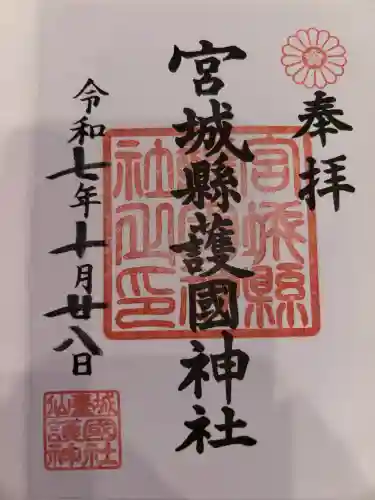 奉拝
宮城縣護國神社
令和七年十月廿八日
宮城縣
護國神
社之印
仙臺城
護國神社